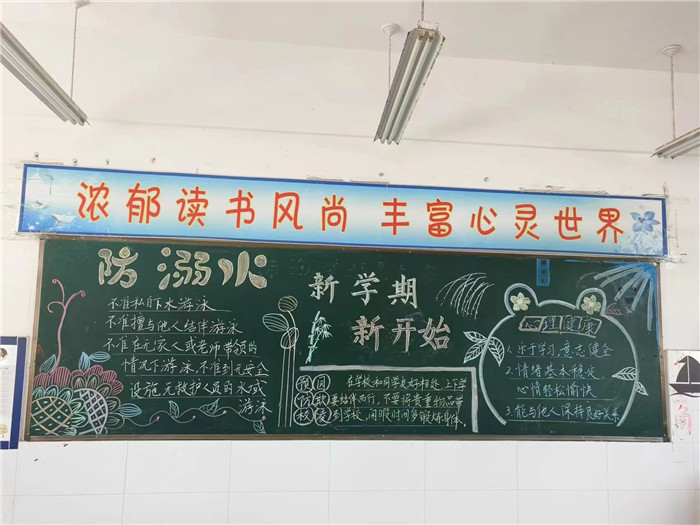 浓郁读书风尚 丰富心灵世界
防溺水
不准私自下水游泳
不准擅与他人结伴游泳
不准在无家人或老师带领的
情况下游泳、不准到无安全
设施、无救护人员的水域
游泳
新学期
新开始
预防校园欺凌
在学校和同学友好相处,上下学
要结伴而行,不要将贵重物品带
到学校,闲暇时间多锻炼身体。
心理健康
1.乐于学习,意志健全
2.情绪基本稳定,
心情轻松愉快
3.能与他人保持良好关系